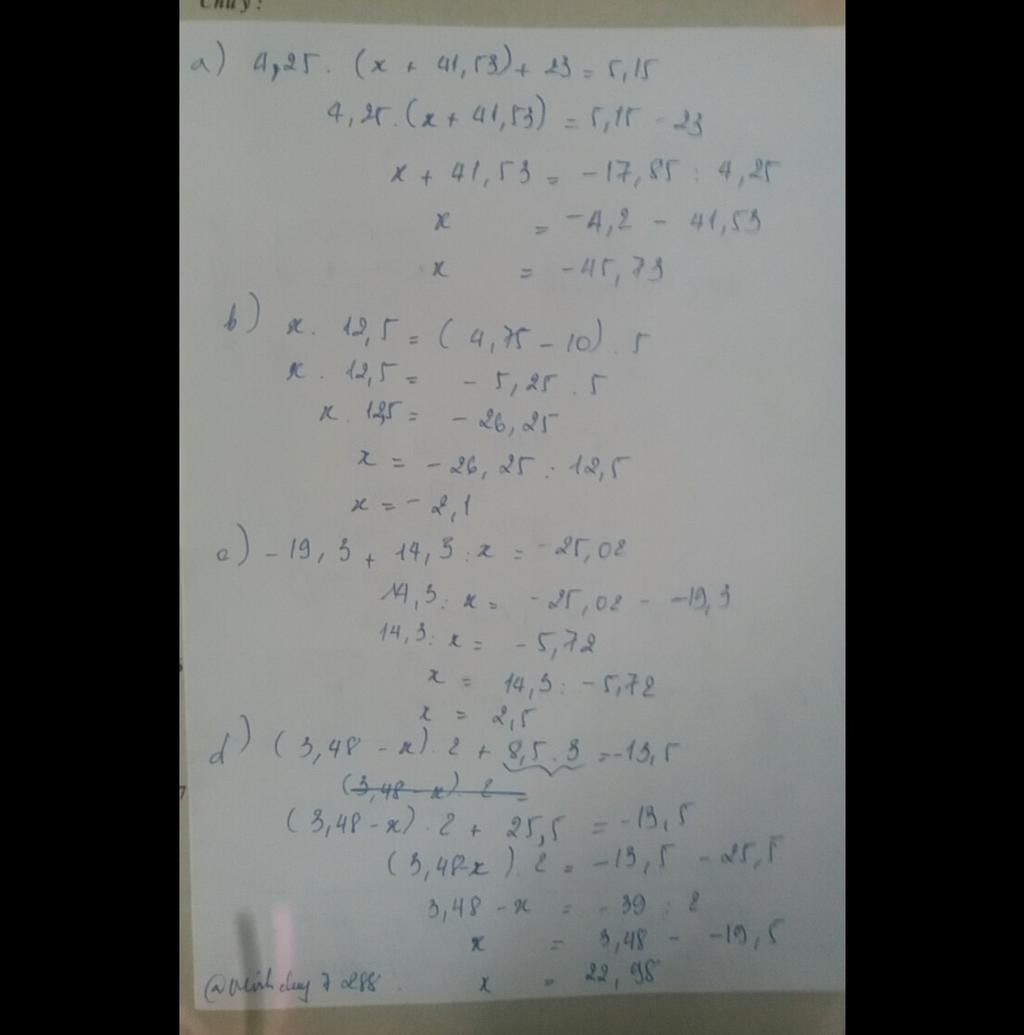 Chú ý:
a) 4,25 . (x + 41,53) + 23 = 5,15
4,25 . (x + 41,53) = 5,15 - 23
x + 41,53 = -17,85 : 4,25
x = -4,2 - 41,53
x = -45,73
b) x . 12,5 = (4,75 - 10) . 5
x . 12,5 = - 5,25 . 5
x . 12,5 = - 26,25
x = - 26,25 : 12,5
x = - 2,1
c) - 19,3 + 14,3 : x = -25,02
14,3 : x = -25,02 - -19,3
14,3 : x = - 5,72
x = 14,3 : -5,72
x = 2,5
d) (3,48 - x) . 2 + 8,5 . 3 = -13,5
(3,48 - x) . 2 =
(3,48 - x) . 2 + 25,5 = -13,5
(3,48 - x) . 2 = -13,5 - 25,5
3,48 - x = - 39 : 2
x = 3,48 - -19,5
x = 22,98
288